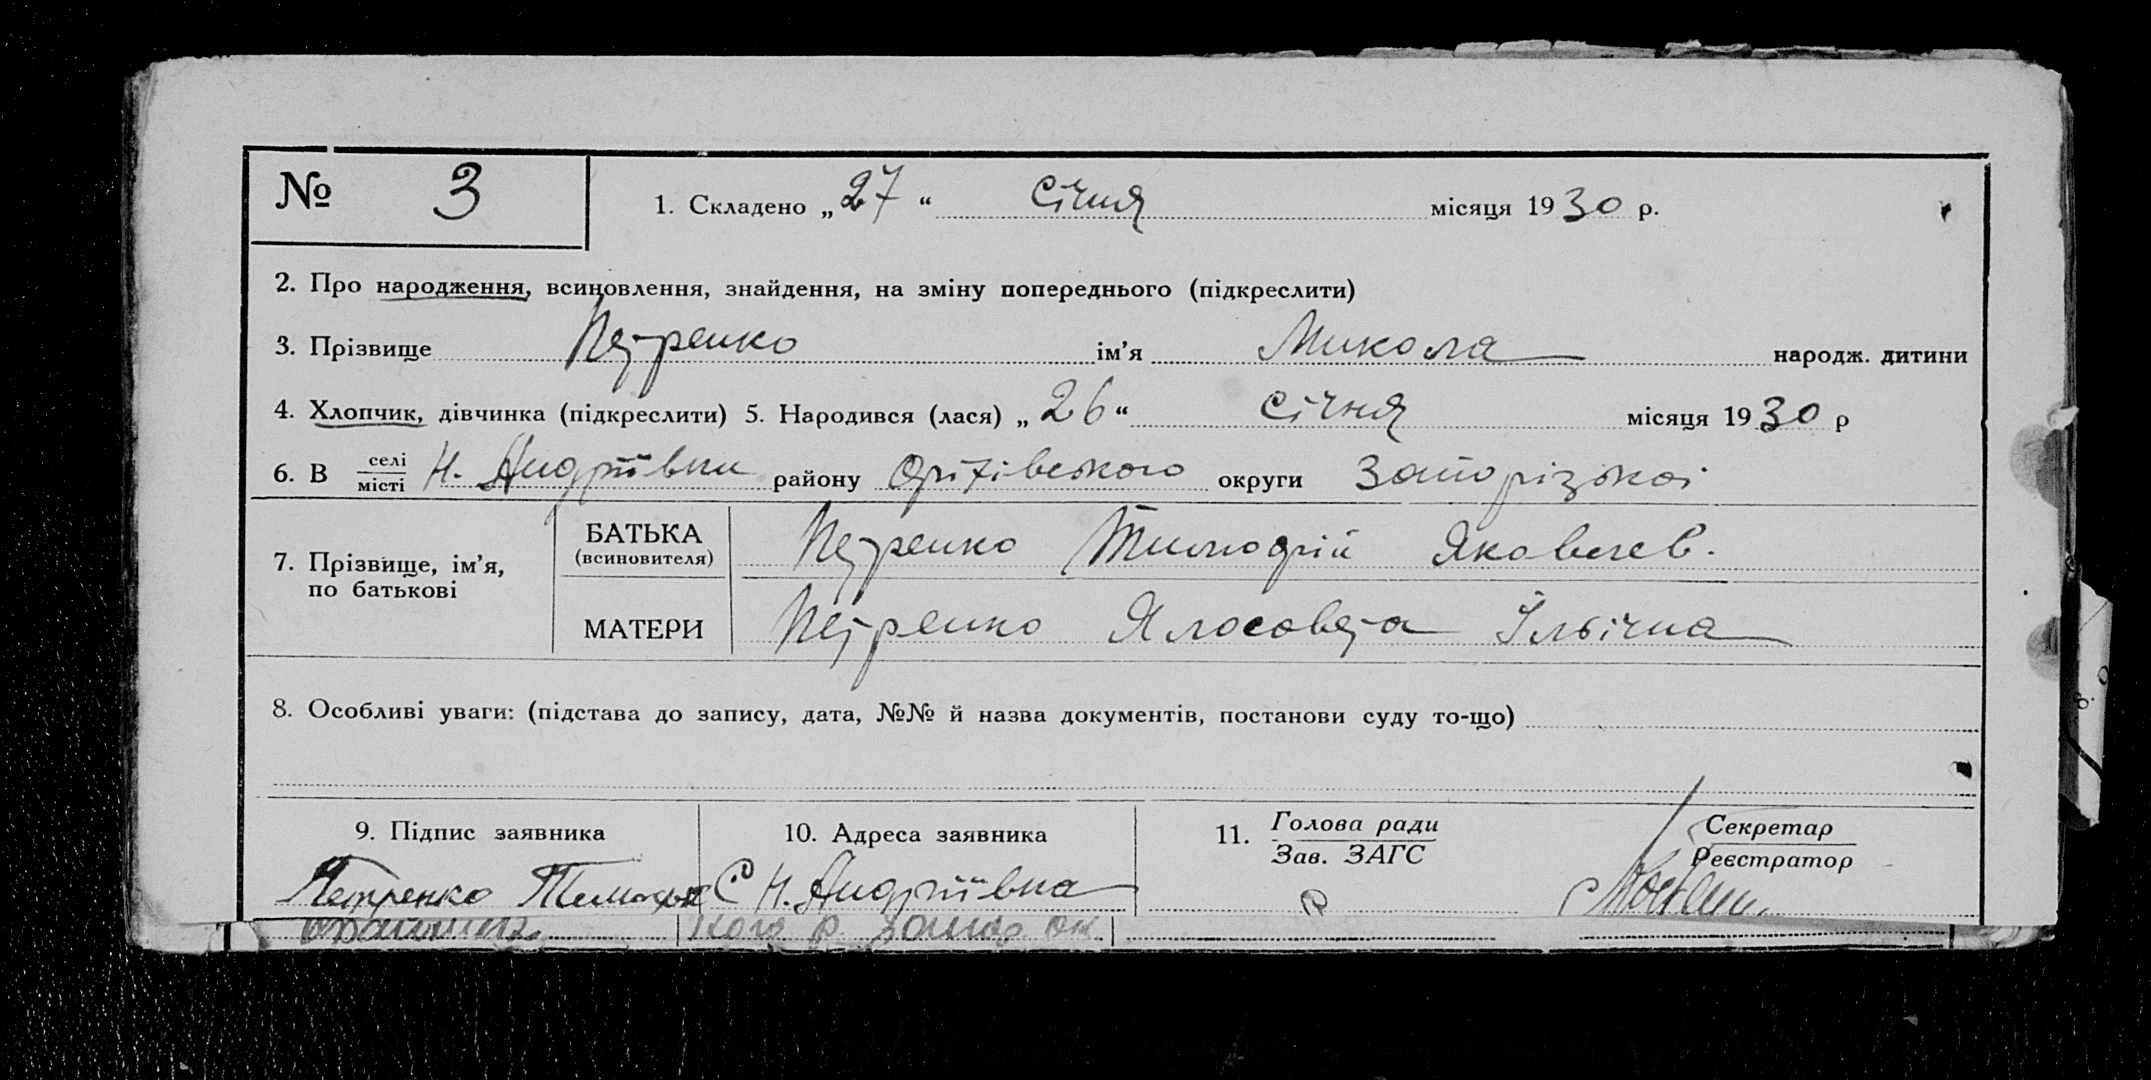 № 3 1. Складено „27“ Січня місяця 1930 р.
2. Про народження, всиновлення, знайдення, на зміну попереднього (підкреслити)
3. Прізвище Петренко ім’я Микола народж. дитини
4. Хлопчик, дівчинка (підкреслити) 5. Народився (лася) „26“ Січня місяця 1930 р
6. В селі місті Н. Андріївки району Оріхівського округи Запорізькоі
7. Прізвище, ім’я, по батькові
БАТЬКА (всиновителя) Петренко Тимофій Яковлев.
МАТЕРИ Петренко Ялосовета Ільічна
8. Особливі уваги: (підстава до запису, дата, №№ й назва документів, постанови суду то-що)
9. Підпис заявника 10. Адреса заявника 11. Голова ради Зав. ЗАГС Секретар Реєстратор
Петренко С Н. Андріївка
кого р.